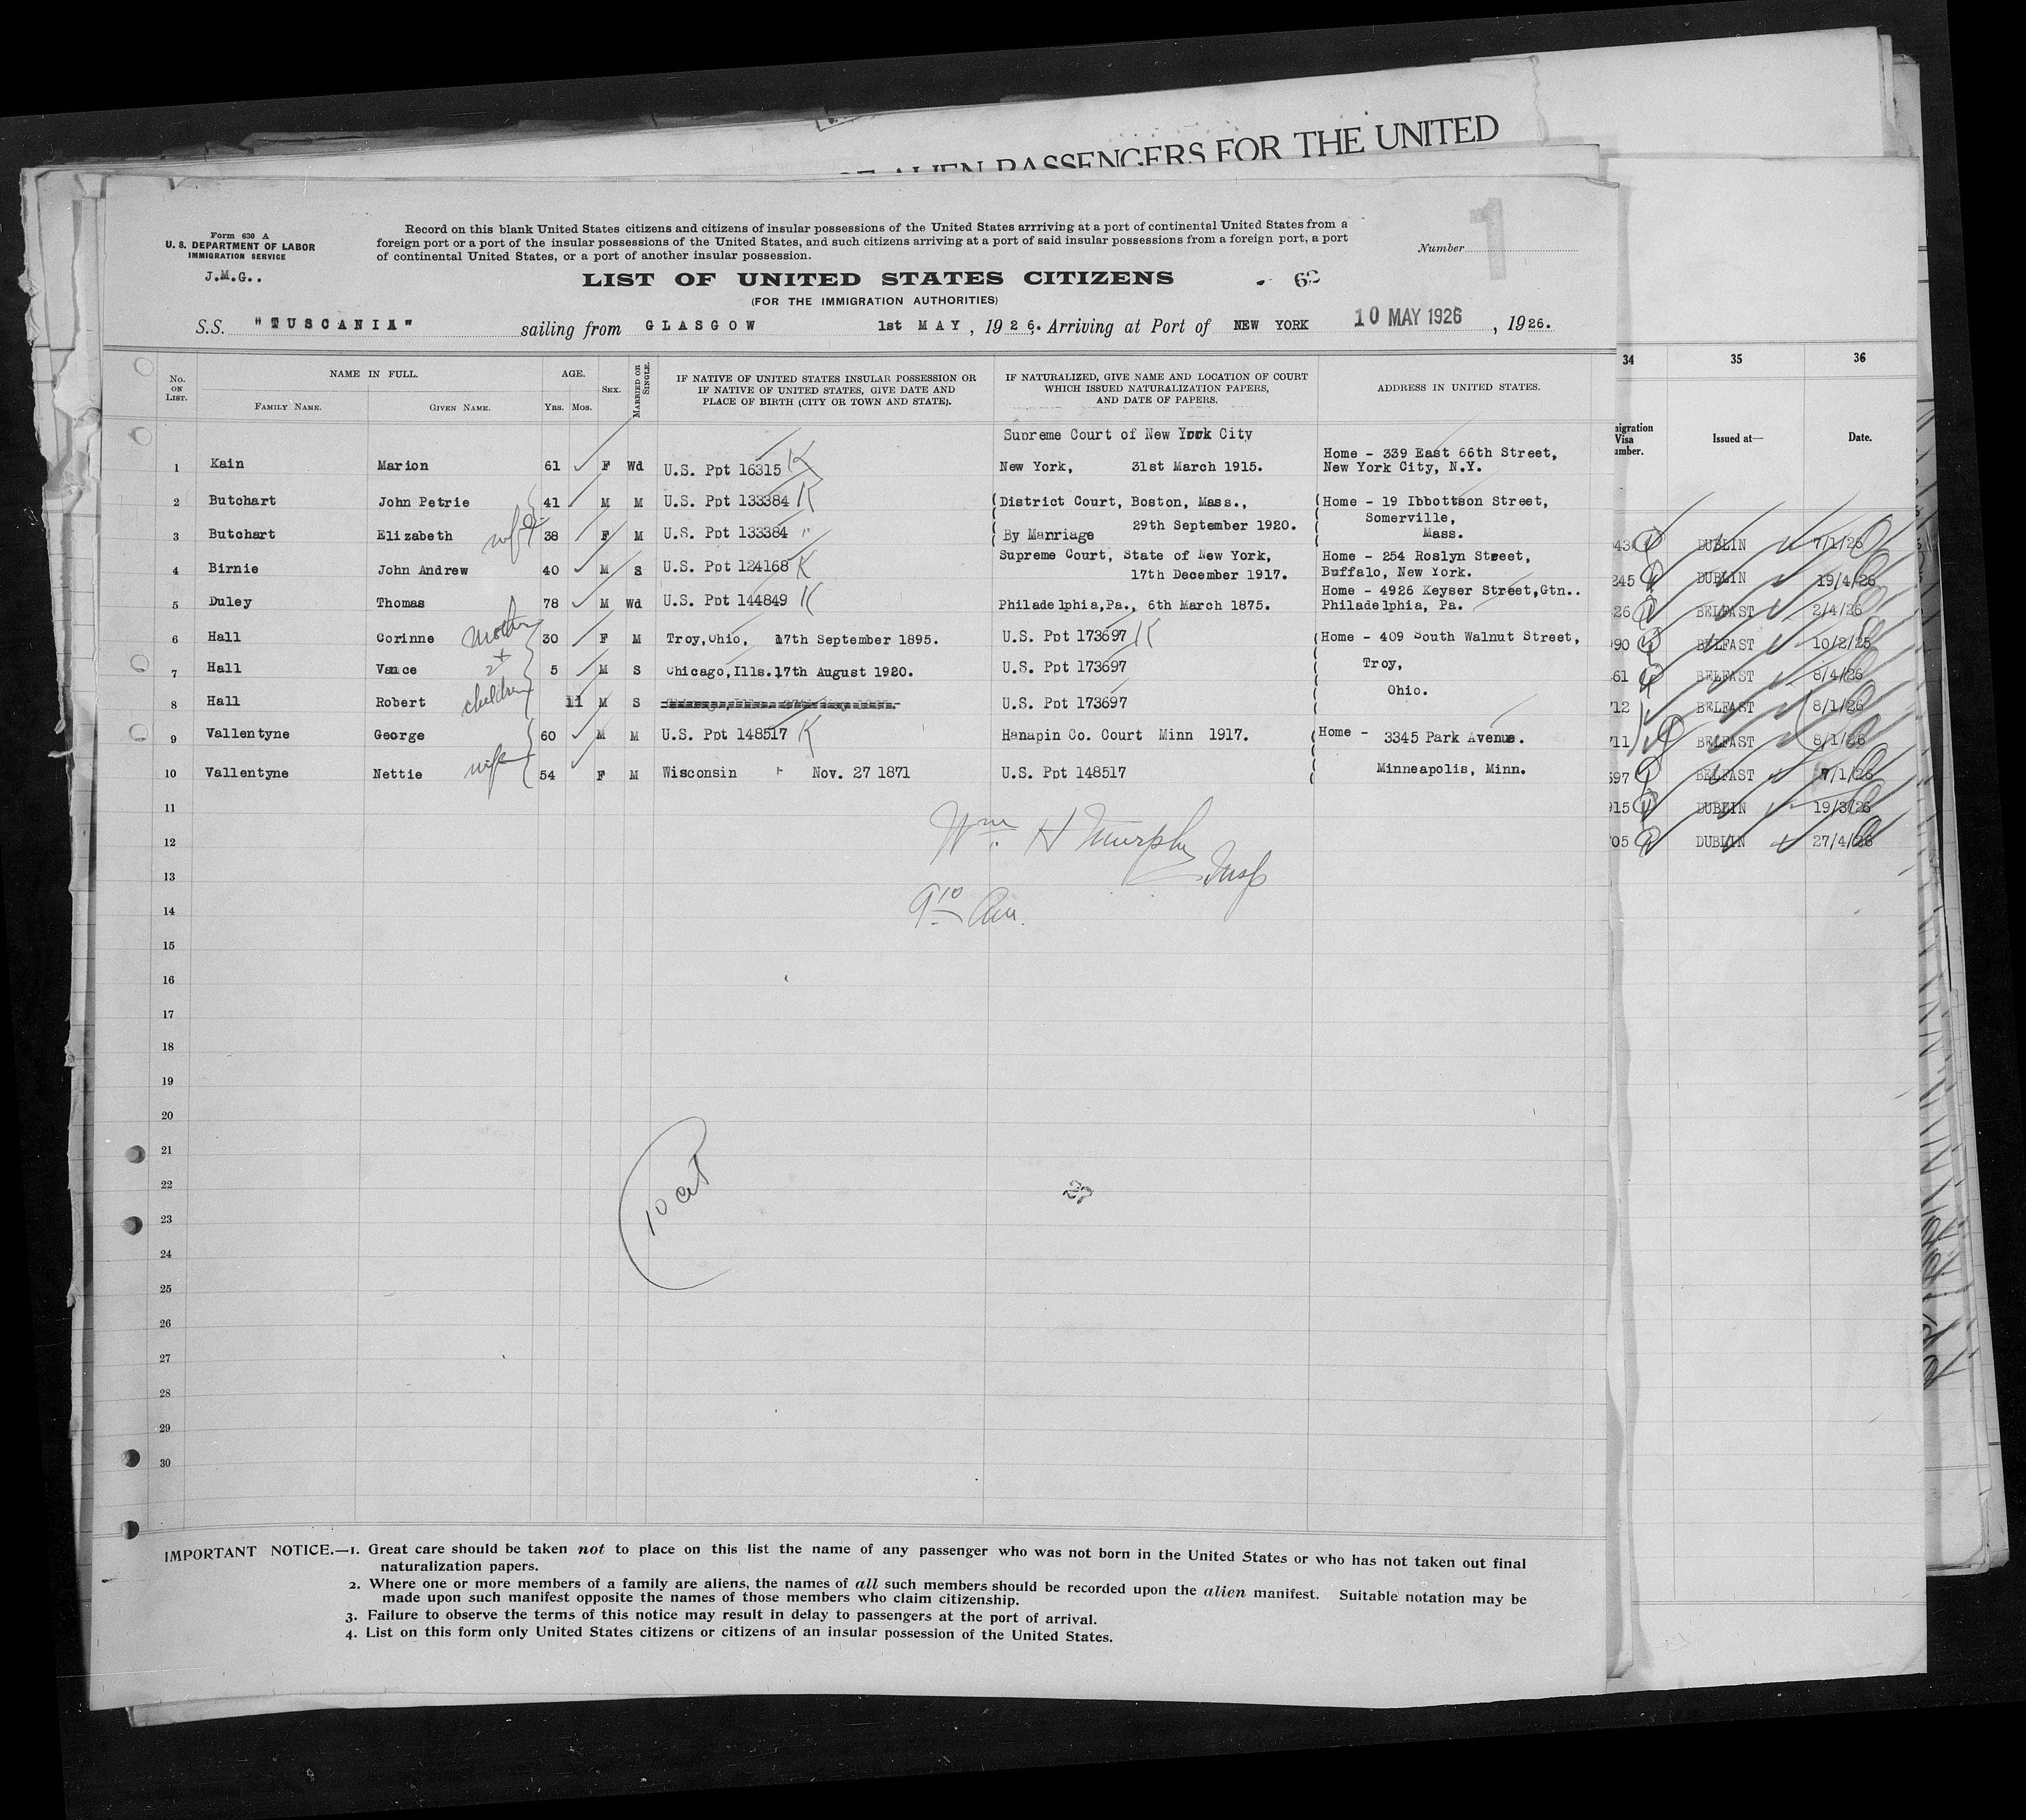 ALIEN PASSENGERS FOR THE UNITED
Form 630 A
U. S. DEPARTMENT OF LABOR
IMMIGRATION SERVICE
J.M.G..
Record on this blank United States citizens and citizens of insular possessions of the United States arrriving at a port of continental United States from a
foreign port or a port of the insular possessions of the United States, and such citizens arriving at a port of said insular possessions from a foreign port, a port
of continental United States, or a port of another insular possession.
Number 1
LIST OF UNITED STATES CITIZENS
(FOR THE IMMIGRATION AUTHORITIES)
S.S. "TUSCANIA" sailing from GLASGOW 1st MAY, 1926. Arriving at Port of NEW YORK 10 MAY 1926, 1926.
No. ON LIST. NAME IN FULL. FAMILY NAME. GIVEN NAME. AGE. Yrs. Mos. SEX. MARRIED OR SINGLE. IF NATIVE OF UNITED STATES INSULAR POSSESSION OR IF NATIVE OF UNITED STATES, GIVE DATE AND PLACE OF BIRTH (CITY OR TOWN AND STATE). IF NATURALIZED, GIVE NAME AND LOCATION OF COURT WHICH ISSUED NATURALIZATION PAPERS, AND DATE OF PAPERS. ADDRESS IN UNITED STATES.
Supreme Court of New York City
1 Kain Marion 61 F Wd U.S. Ppt 16315 K New York, 31st March 1915. Home - 339 East 66th Street, New York City, N.Y.
2 Butchart John Petrie 41 M M U.S. Ppt 133384 K District Court, Boston, Mass., Home - 19 Ibbottson Street,
29th September 1920. Somerville,
3 Butchart Elizabeth wife 38 F M U.S. Ppt 133384 " By Marriage Mass.
Supreme Court, State of New York, Home - 254 Roslyn Street,
4 Birnie John Andrew 40 M S U.S. Ppt 124168 K 17th December 1917. Buffalo, New York.
Home - 4926 Keyser Street,Gtn..
5 Duley Thomas 78 M Wd U.S. Ppt 144849 K Philadelphia,Pa., 6th March 1875. Philadelphia, Pa.
6 Hall Corinne Mother 30 F M Troy,Ohio, 17th September 1895. U.S. Ppt 173697 K Home - 409 South Walnut Street,
7 Hall Vance 2 + 5 M S Chicago,Ills.17th August 1920. U.S. Ppt 173697 Troy,
Ohio.
8 Hall Robert children 11 M S U.S. Ppt 173697
9 Vallentyne George 60 M M U.S. Ppt 148517 K Hanapin Co. Court Minn 1917. Home - 3345 Park Avenue.
10 Vallentyne Nettie wife 54 F M Wisconsin Nov. 27 1871 U.S. Ppt 148517 Minneapolis, Minn.
11
12
Wm. H Murphy
Insp
13
9 10 Am.
14
15
16
17
18
19
20
21
22
23
24
25
26
27
28
29
30
10 cit
27
IMPORTANT NOTICE.—1. Great care should be taken not to place on this list the name of any passenger who was not born in the United States or who has not taken out final
naturalization papers.
2. Where one or more members of a family are aliens, the names of all such members should be recorded upon the alien manifest. Suitable notation may be
made upon such manifest opposite the names of those members who claim citizenship.
3. Failure to observe the terms of this notice may result in delay to passengers at the port of arrival.
4. List on this form only United States citizens or citizens of an insular possession of the United States.
34 35 36
Visa Issued at— Date.
DUBLIN 7/1/26
245 DUBLIN 19/4/26
26 BELFAST 2/4/26
90 BELFAST 10/2/25
61 BELFAST 8/4/26
712 BELFAST 8/1/26
711 BELFAST 8/1/26
597 BELFAST 7/1/26
915 DUBLIN 19/3/26
705 DUBLIN 27/4/26